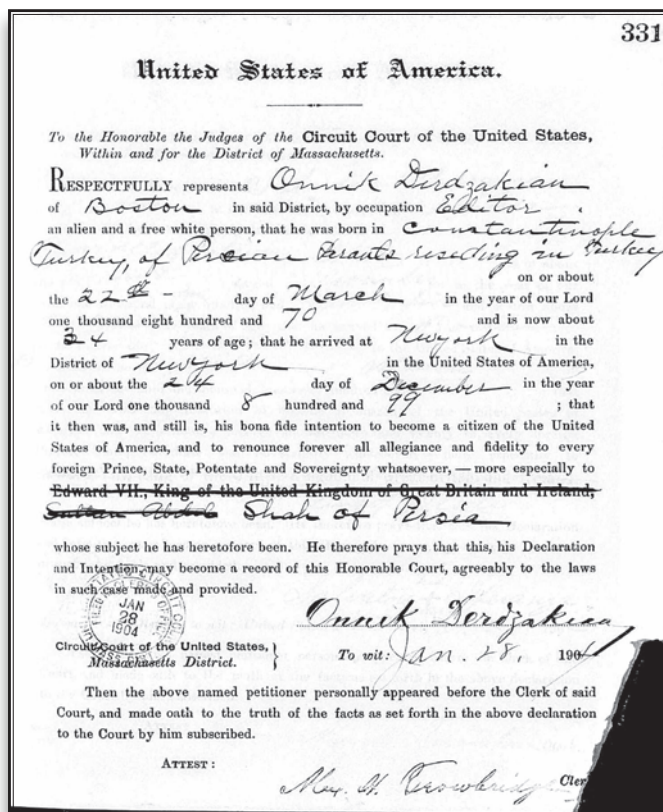 331
United States of America.
To the Honorable the Judges of the Circuit Court of the United States,
Within and for the District of Massachusetts.
RESPECTFULLY represents Onnik Derdzakian
of Boston in said District, by occupation Editor.
an alien and a free white person, that he was born in Constantinople
Turkey, of Persian Parents residing in Turkey
on or about
the 22nd day of March in the year of our Lord
one thousand eight hundred and 70 and is now about
34 years of age; that he arrived at Newyork in the
District of Newyork in the United States of America,
on or about the 24 day of December in the year
of our Lord one thousand 8 hundred and 99 ; that
it then was, and still is, his bona fide intention to become a citizen of the United
States of America, and to renounce forever all allegiance and fidelity to every
foreign Prince, State, Potentate and Sovereignty whatsoever, — more especially to
Edward VII., King of the United Kingdom of Great Britain and Ireland,
Sultan Abdul Shah of Persia
whose subject he has heretofore been. He therefore prays that this, his Declaration
and Intention, may become a record of this Honorable Court, agreeably to the laws
in such case made and provided.
JAN
28
1904
Onnik Derdzakian
Circuit Court of the United States,
Massachusetts District.
To wit: Jan. 28, 1904
Then the above named petitioner personally appeared before the Clerk of said
Court, and made oath to the truth of the facts as set forth in the above declaration
to the Court by him subscribed.
ATTEST:
Alex. H. Trowbridge
Clerk